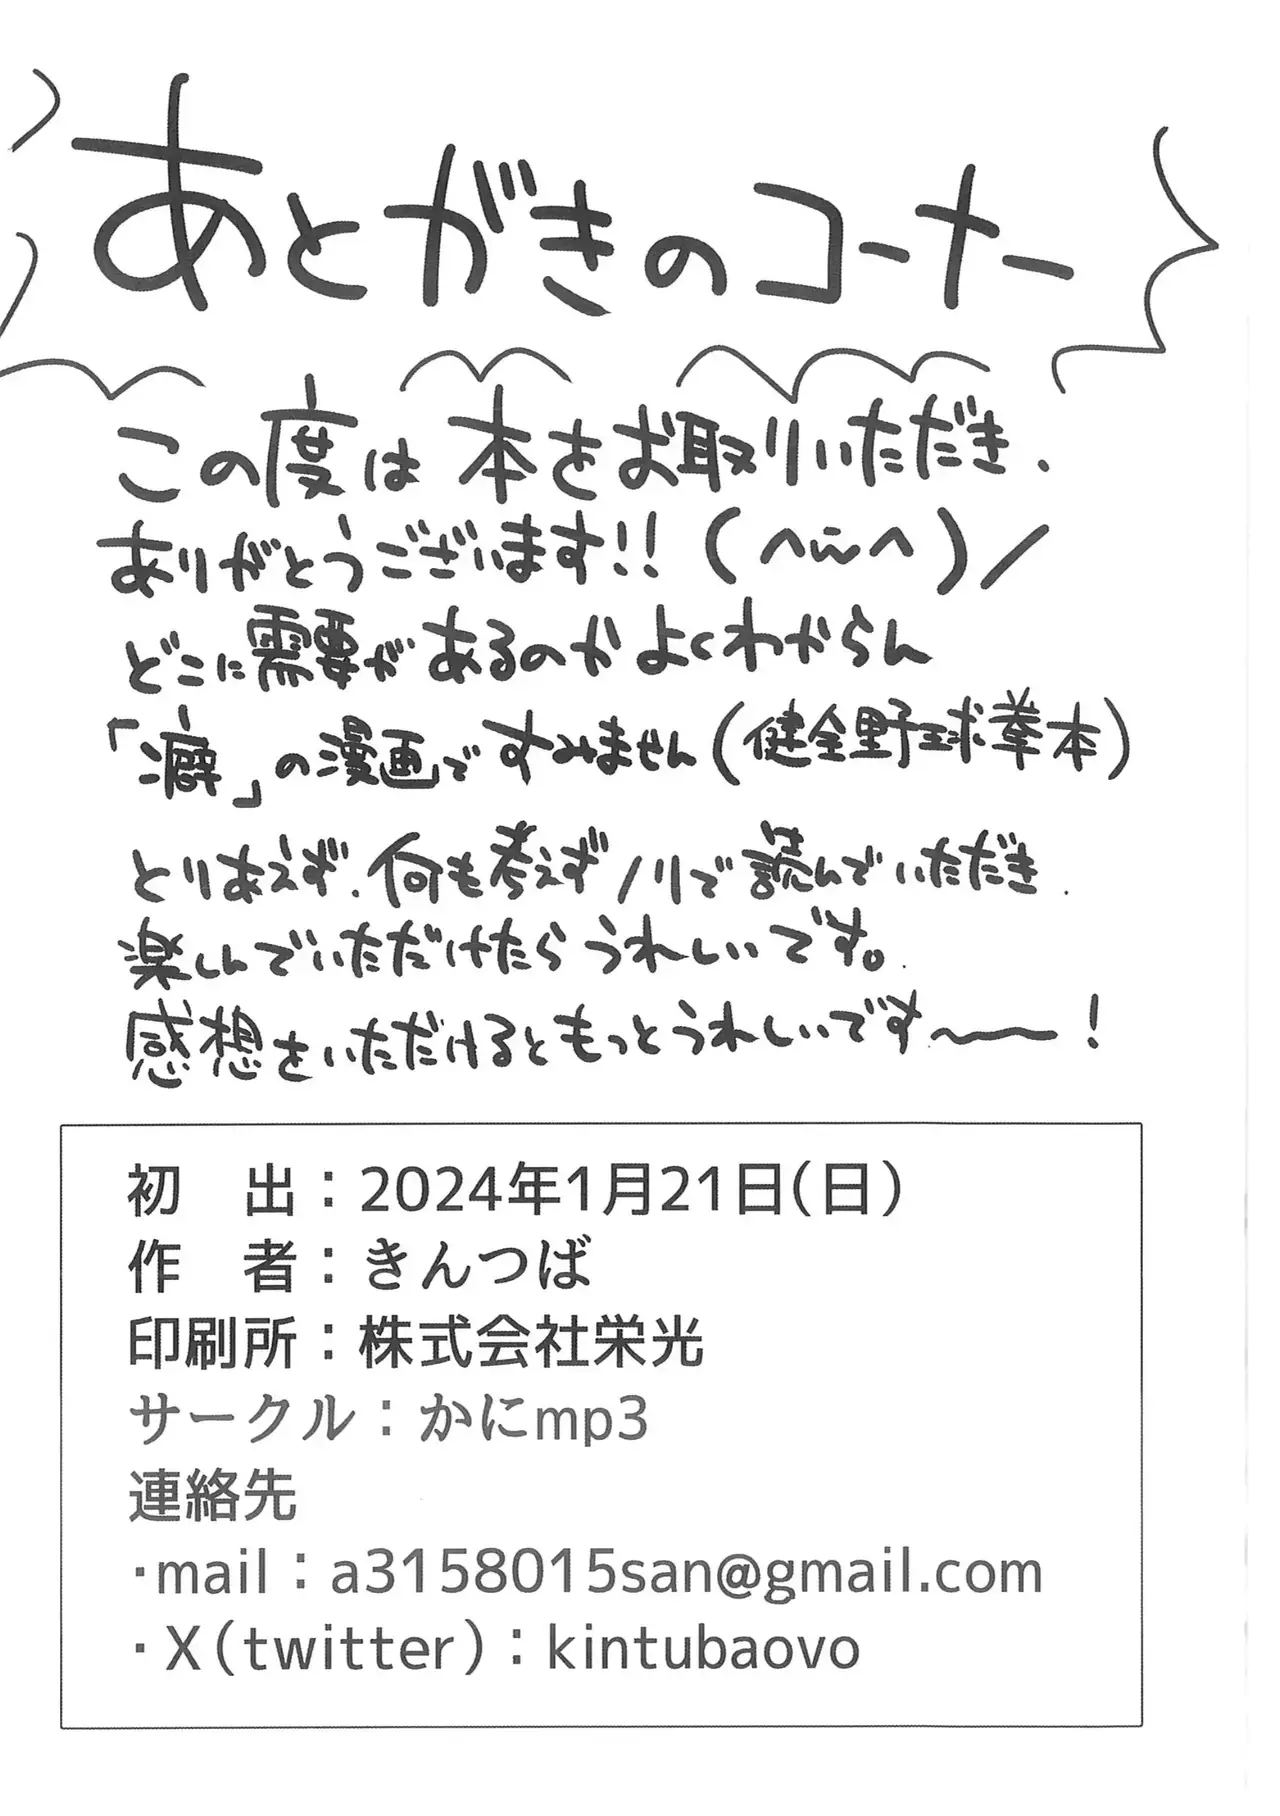 あとがきのコーナー
この度は本をお取りいただき、
ありがとうございます!! (^ω^)/
どこに需要があるのかよくわからん
「癖」の漫画ですみません(健全野球拳本)
とりあえず、何も考えずノリで読んでいただき、
楽しんでいただけたらうれしいです。
感想をいただけるともっとうれしいです〜!
初　出：2024年1月21日(日)
作　者：きんつば
印刷所：株式会社栄光
サークル：かにmp3
連絡先
・mail：a3158015san@gmail.com
・X(twitter)：kintubaovo